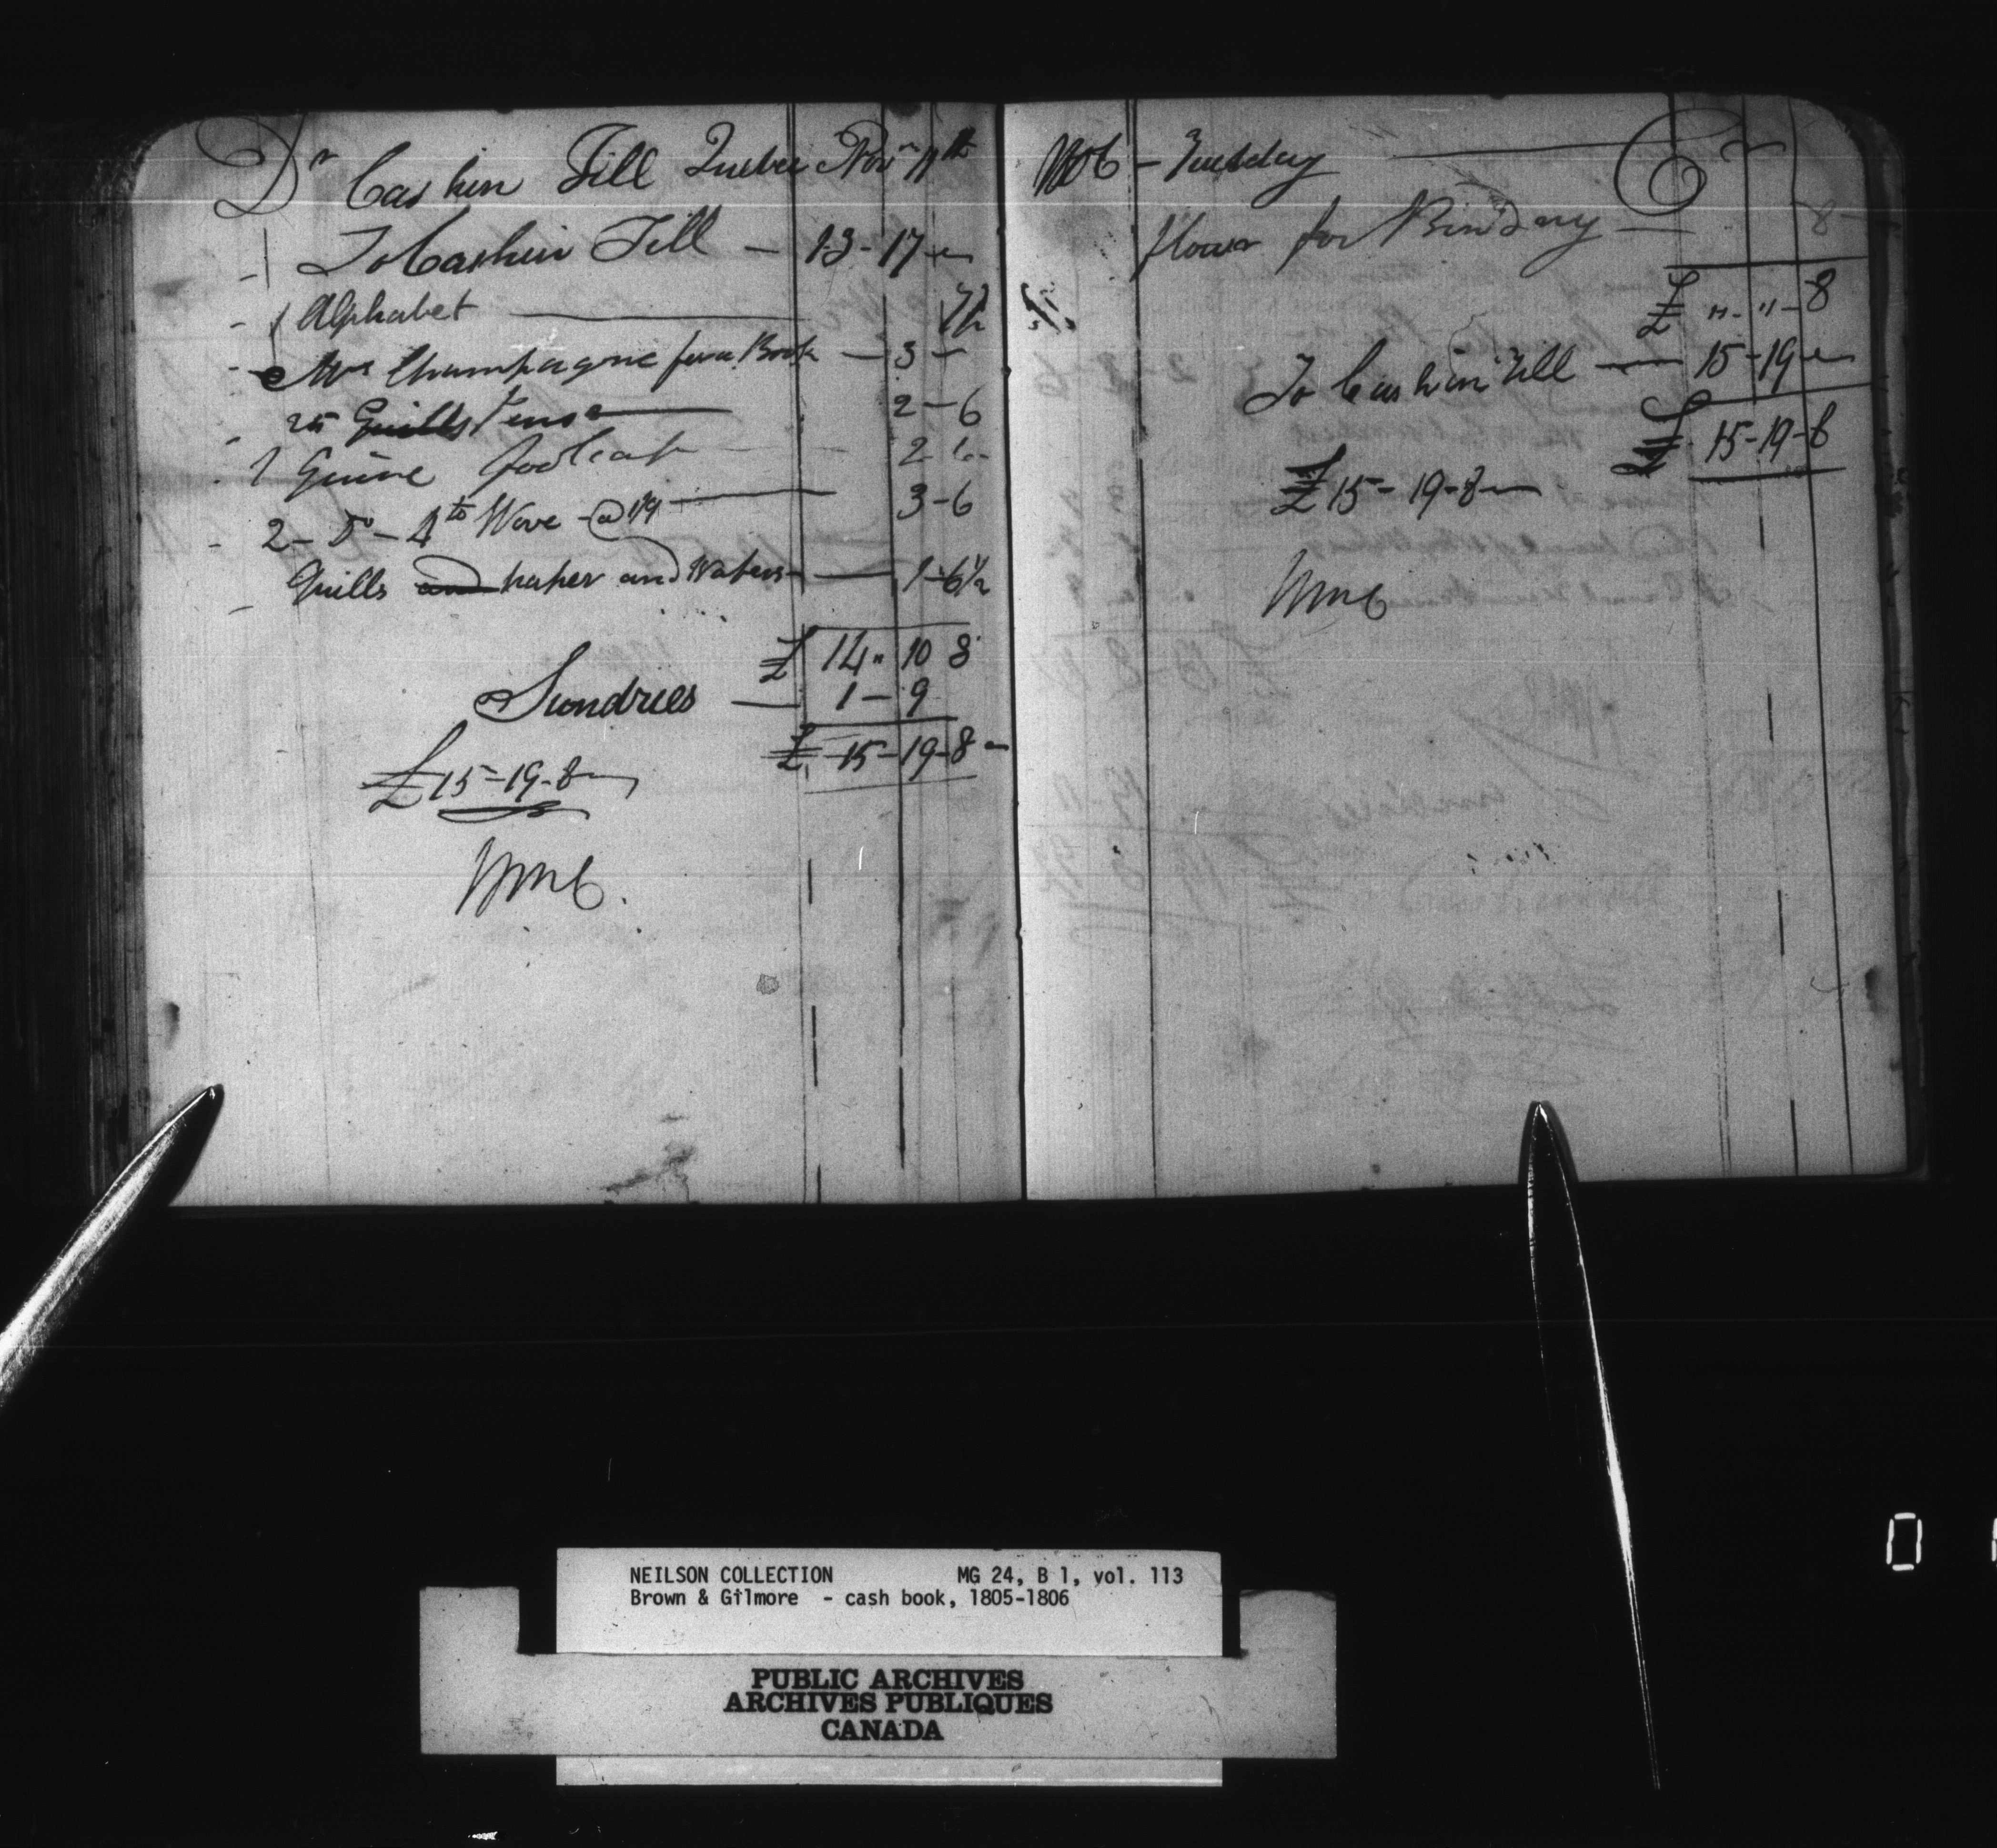 Dr Cash in Till Quebec Novr 11th
To Cash in Till — 13-17-"
1 Alphabet — 7½
Mrs Champagne for a Book — 3 -
25 Quills Pens — 2-6
1 Quire foolscap — 2 6
2 - Do - 4to Wove @ 1/9 — 3-6
Quills and paper and Wafers — 1-6½
£ 14" 10 8
Sundries — 1 - 9
£ 15-19-8
£15-19-8
1806 - Tuesday — Cr
flour for Bindary — 8
£ "-"-8
To Cash in Till — 15-19-
£ 15-19-8
£15-19-8
NEILSON COLLECTION MG 24, B 1, vol. 113
Brown & Gilmore - cash book, 1805-1806
PUBLIC ARCHIVES
ARCHIVES PUBLIQUES
CANADA
0